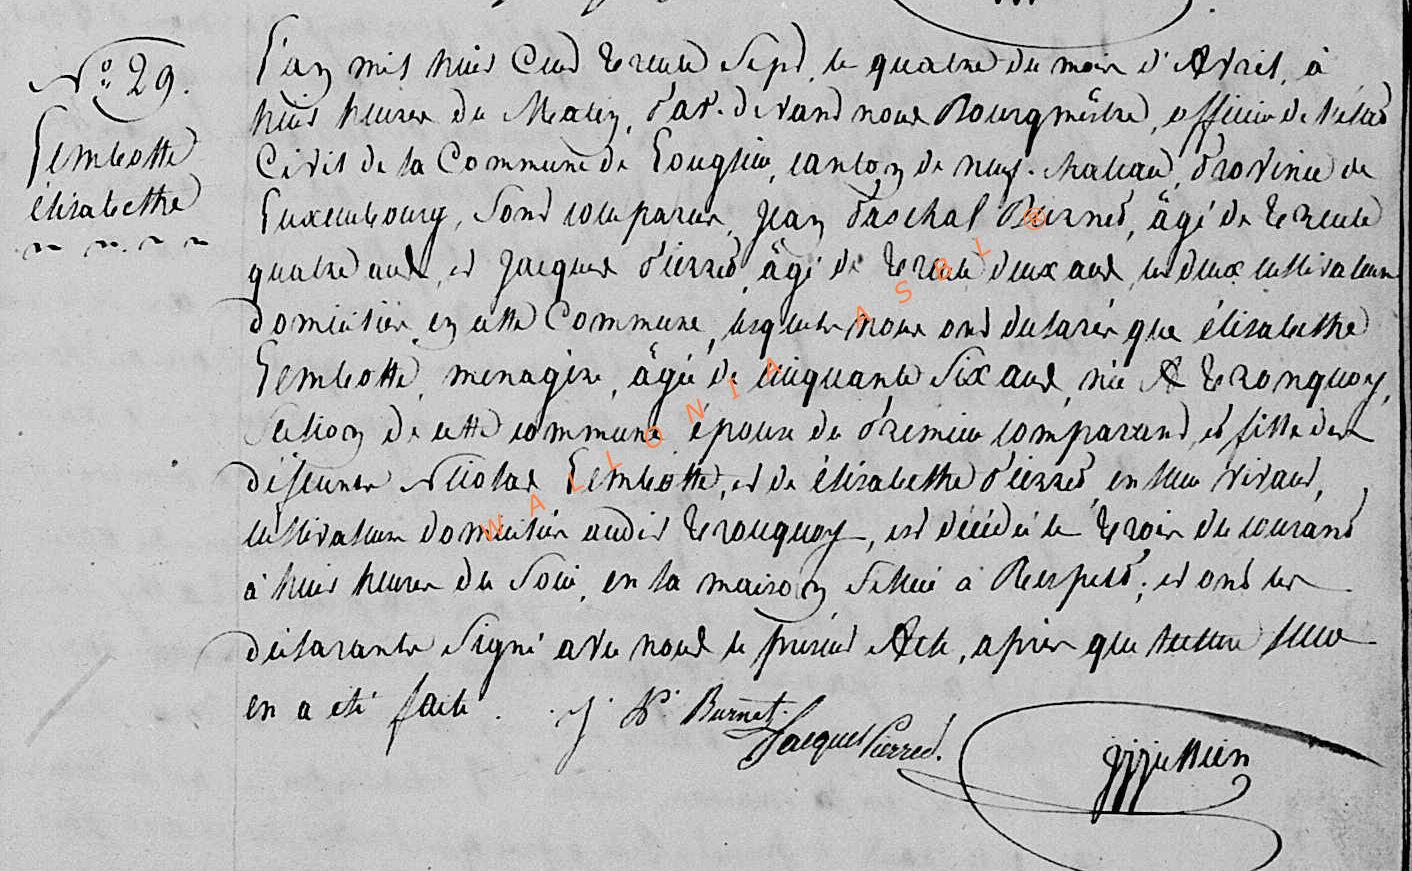 N.° 29.
Lembotte
élisabethe
L'an mil huit Cent trente Sept, le quatre du mois d'Avril, à
huit heures du Matin, Par-devant nous Bourgmêstre, officier de l'état
Civil de la Commune de Longlier, canton de neuf-chateau, Province de
Luxembourg, Sont comparus, Jean Paschal Burnet, âgé de trente
quatre ans, et Jacques Pierret, âgé de trente deux ans, les deux cultivateurs
domiciliés en cette Commune, lesquels nous ont déclarés que élisabethe
Lembotte, menagère, âgée de cinquante Six ans, née A tronquoy,
Section de cette commune, épouse du Premier comparant, et fille des
défunts Nicolas Lembotte, et de élisabethe Pierret, en leur vivant,
cultivateurs domiciliés audit tronquoy, est décédée le trois du courant
à huit heures du Soir, en la maison Située à Respelt; et ont les
déclarants Signé avec nous le présent Acte, après que lecture leur
en a été faite. J. P. Burnet.
Jacques Pierret.
jjjullien
WALLONIA ASBL ®